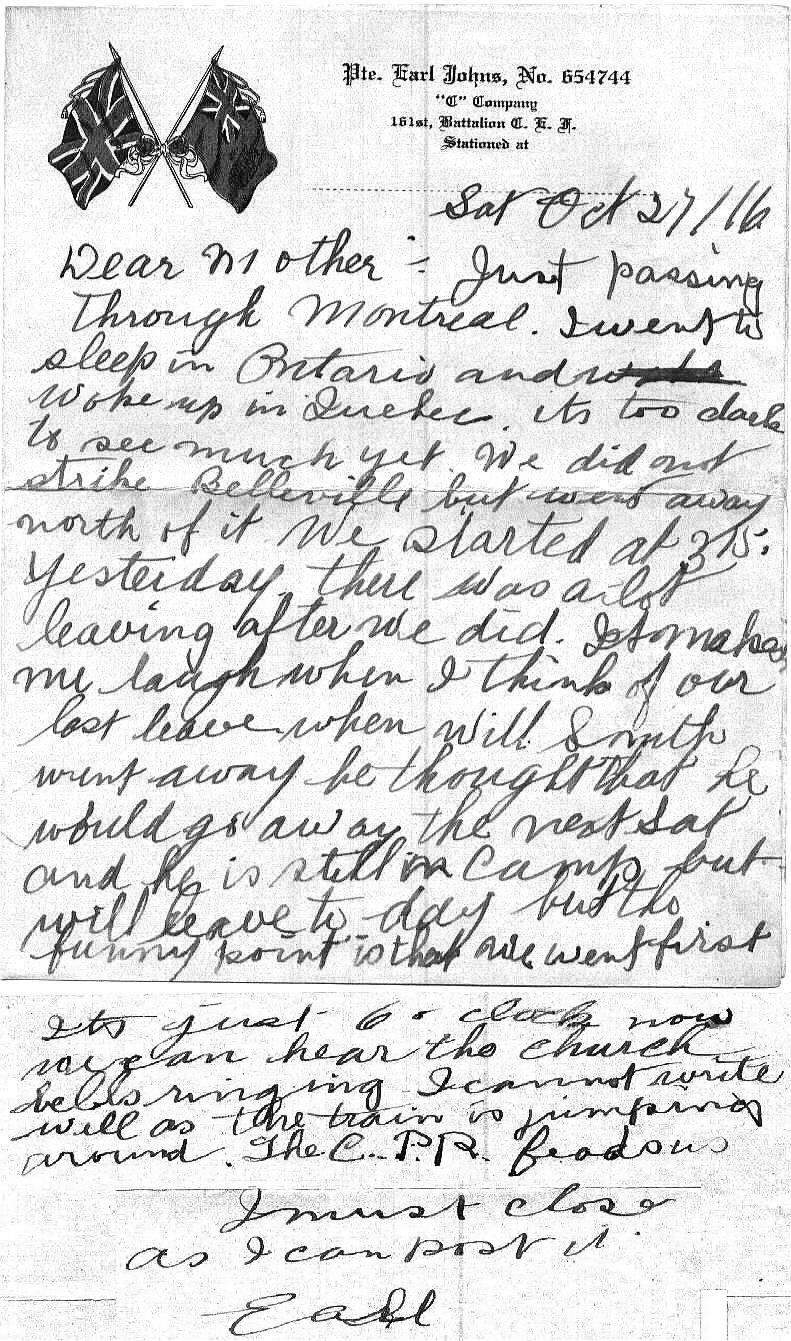 Pte. Earl Johns, No. 654744
"C" Company
161st, Battalion C. E. F.
Stationed at
Sat Oct 27/16
Dear Mother :- Just passing
through Montreal. I went to
sleep in Ontario and
woke up in Quebec. its too dark
to see much yet. We did not
strike Belleville but went away
north of it We started at 3 15.
Yesterday. there was a lot
leaving after we did. It makes
me laugh when I think of our
last leave when Will Smith
went away he thought that he
would go away the next Sat
and he is still in Camp but
will leave to-day but the
funny point is that we went first
Its just 6 o clock now
we can hear the church
bells ringing I cannot write
well as the train is jumping
around. The C. P. R. feeds us
I must close
as I can post it.
Earl